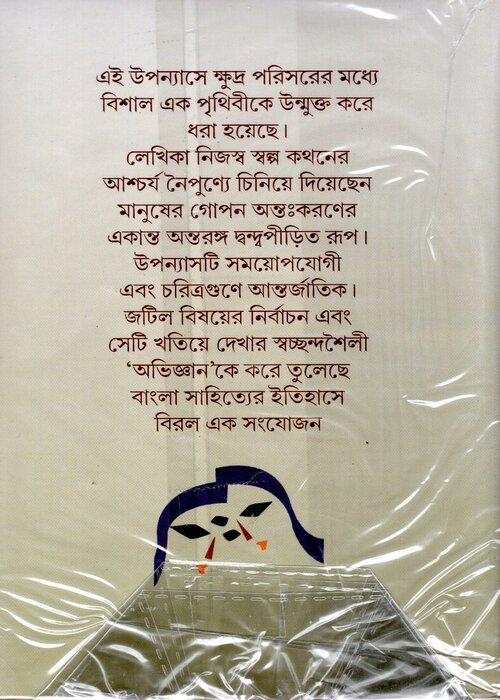 এই উপন্যাসে ক্ষুদ্র পরিসরের মধ্যে
বিশাল এক পৃথিবীকে উন্মুক্ত করে
ধরা হয়েছে।
লেখিকা নিজস্ব স্বল্প কথনের
আশ্চর্য নৈপুণ্যে চিনিয়ে দিয়েছেন
মানুষের গোপন অন্তঃকরণের
একান্ত অন্তরঙ্গ দ্বন্দ্বপীড়িত রূপ।
উপন্যাসটি সময়োপযোগী
এবং চরিত্রগুণে আন্তর্জাতিক।
জটিল বিষয়ের নির্বাচন এবং
সেটি খতিয়ে দেখার স্বচ্ছন্দশৈলী
‘অভিজ্ঞান’কে করে তুলেছে
বাংলা সাহিত্যের ইতিহাসে
বিরল এক সংযোজন